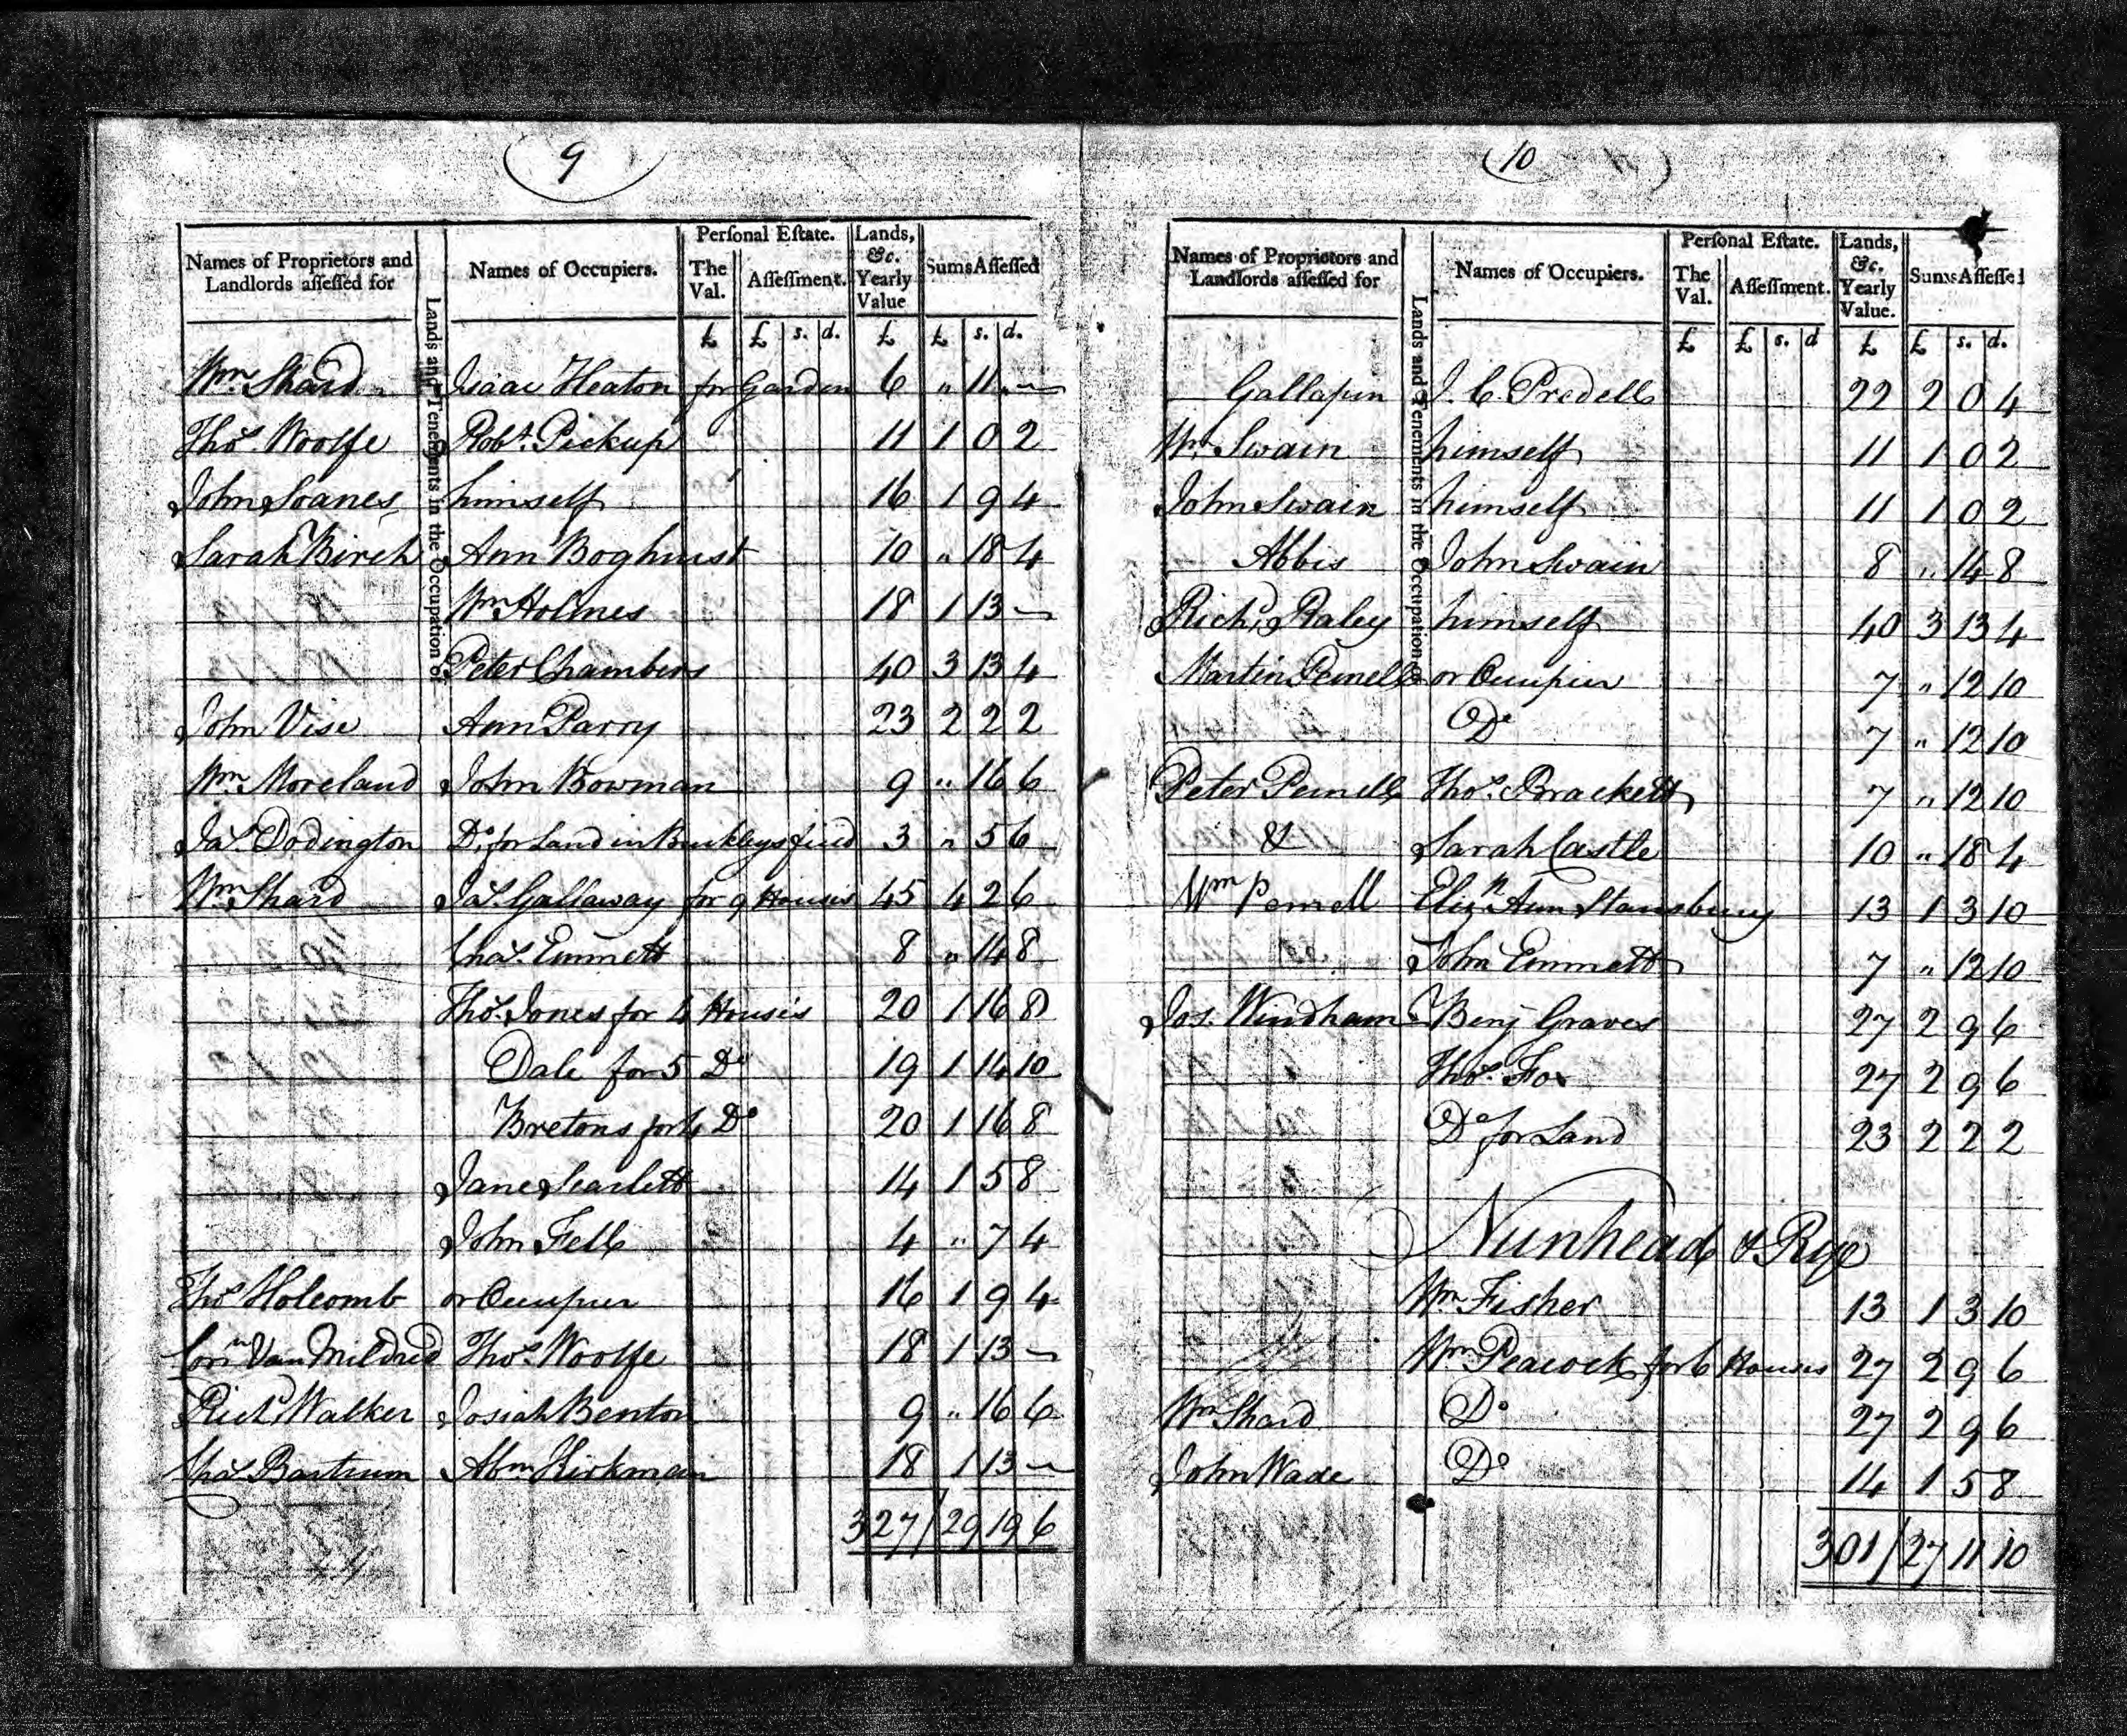 9
Names of Proprietors and Landlords assessed for
Lands and Tenements in the Occupation of
Names of Occupiers.
Personal Estate.
The Val.
Assessment.
Lands, &c. Yearly Value
Sums Assessed
£ £ s. d. £ £ s. d.
Wm. Shard Isaac Heaton for Garden 6 " 11 —
Thos. Woolfe Robt. Pickup 11 1 0 2
John Soanes himself 16 1 9 4
Sarah Birch Ann Boghurst 10 " 18 4
Wm Holmes 18 1 13 —
Peter Chambers 40 3 13 4
John Vise Ann Parry 23 2 2 2
Wm. Moreland John Bowman 9 " 16 6
Jas. Dodington Do. for Land in Buckleys field 3 " 5 6
Wm Shard Jas. Gallaway for 9 Houses 45 4 2 6
Chas. Emmett 8 " 14 8
Thos. Jones for 4 Houses 20 1 16 8
Dale for 5 Do 19 1 14 10
Bretons for 4 Do 20 1 16 8
Jane Scarlett 14 1 5 8
John Fell 4 " 7 4
Thos. Holcomb or Occupier 16 1 9 4
Corn. Van Mildred Thos. Woolfe 18 1 13 —
Richd. Walker Josiah Benton 9 " 16 6
Chas. Bartrum Abm Kirkman 18 1 13 —
327 / 29 19 6
10
Names of Proprietors and Landlords assessed for
Lands and Tenements in the Occupation of
Names of Occupiers.
Personal Estate.
The Val.
Assessment.
Lands, &c. Yearly Value.
Sums Assessed
£ £ s. d £ £ s. d.
Gallapin J. C. Predell 22 2 0 4
Wm. Swain himself 11 1 0 2
John Swain himself 11 1 0 2
Abbis John Swain 8 " 14 8
Richd. Raley himself 40 3 13 4
Martin Pernell or Occupier 7 " 12 10
Do 7 " 12 10
Peter Pernell Thos. Brackett 7 " 12 10
& Sarah Castle 10 " 18 4
Wm Pernell Eliz. Ann Stansbury 13 1 3 10
John Emmett 7 " 12 10
Jos. Windham Benj Graves 27 2 9 6
Thos. Fox 27 2 9 6
Do for Land 23 2 2 2
Nunhead & Rye
Wm Fisher 13 1 3 10
Wm Peacock for 6 Houses 27 2 9 6
Wm Shard Do 27 2 9 6
John Wade Do 14 1 5 8
301 / 27 11 10